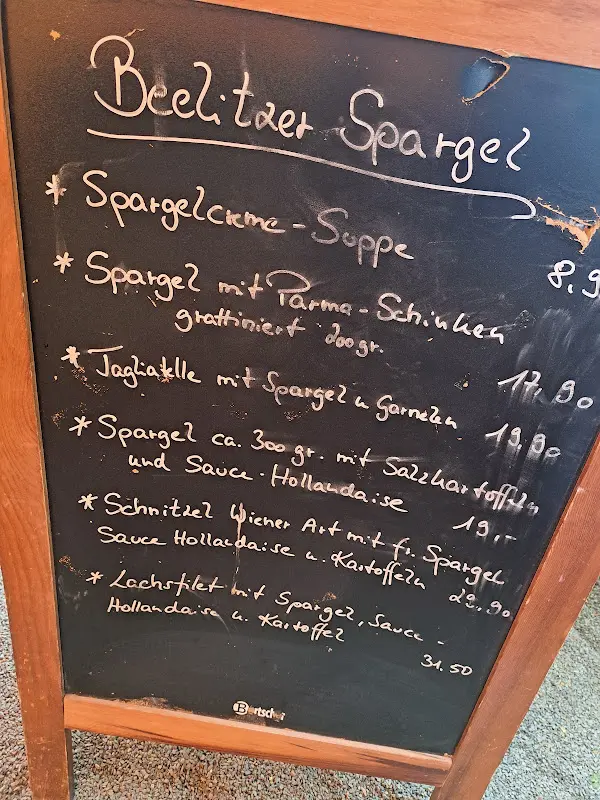 Beelitzer Spargel
* Spargelcreme-Suppe
8,9
* Spargel mit Parma-Schinken
grattiniert 200gr.
17,90
* Tagliatelle mit Spargel u Garnelen
19,90
* Spargel ca. 300 gr. mit Salzkartoffeln
und Sauce-Hollandaise
19,-
* Schnitzel Wiener Art mit fr. Spargel
Sauce Hollandaise u. Kartoffeln
29,90
* Lachsfilet mit Spargel, Sauce-
Hollandaise u. Kartoffel
31.50
Bartscher